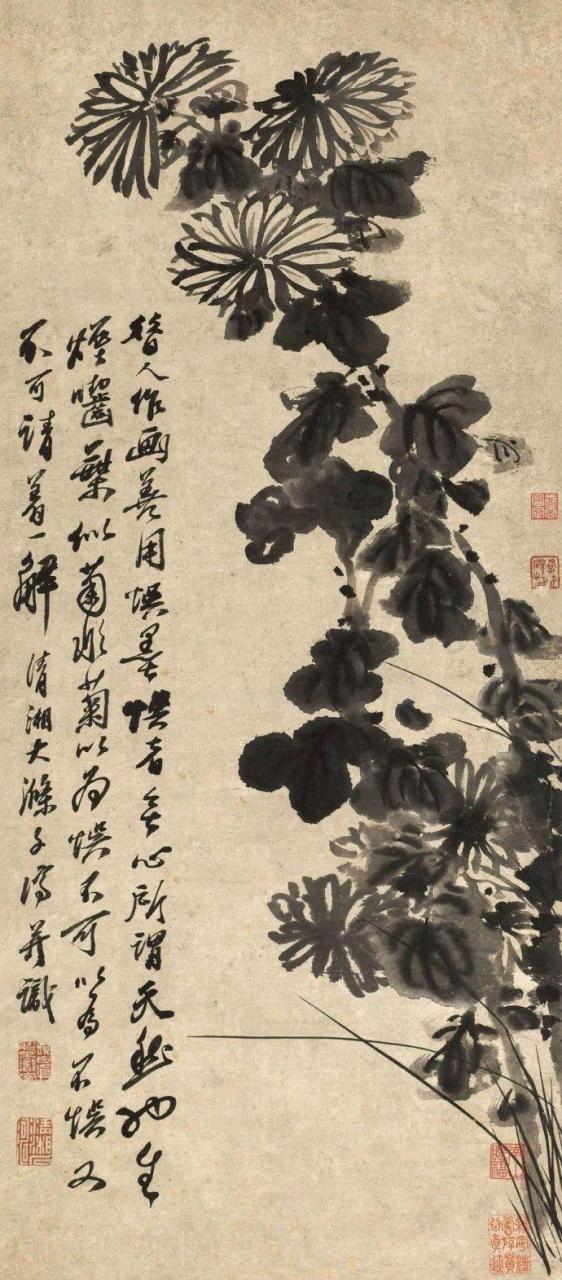 昔人作画善用悮墨悮者無心所謂天然地生
葉似菊非菊以為悮不可以為不悮又
不可請著一解 清湘大滌子濟并識